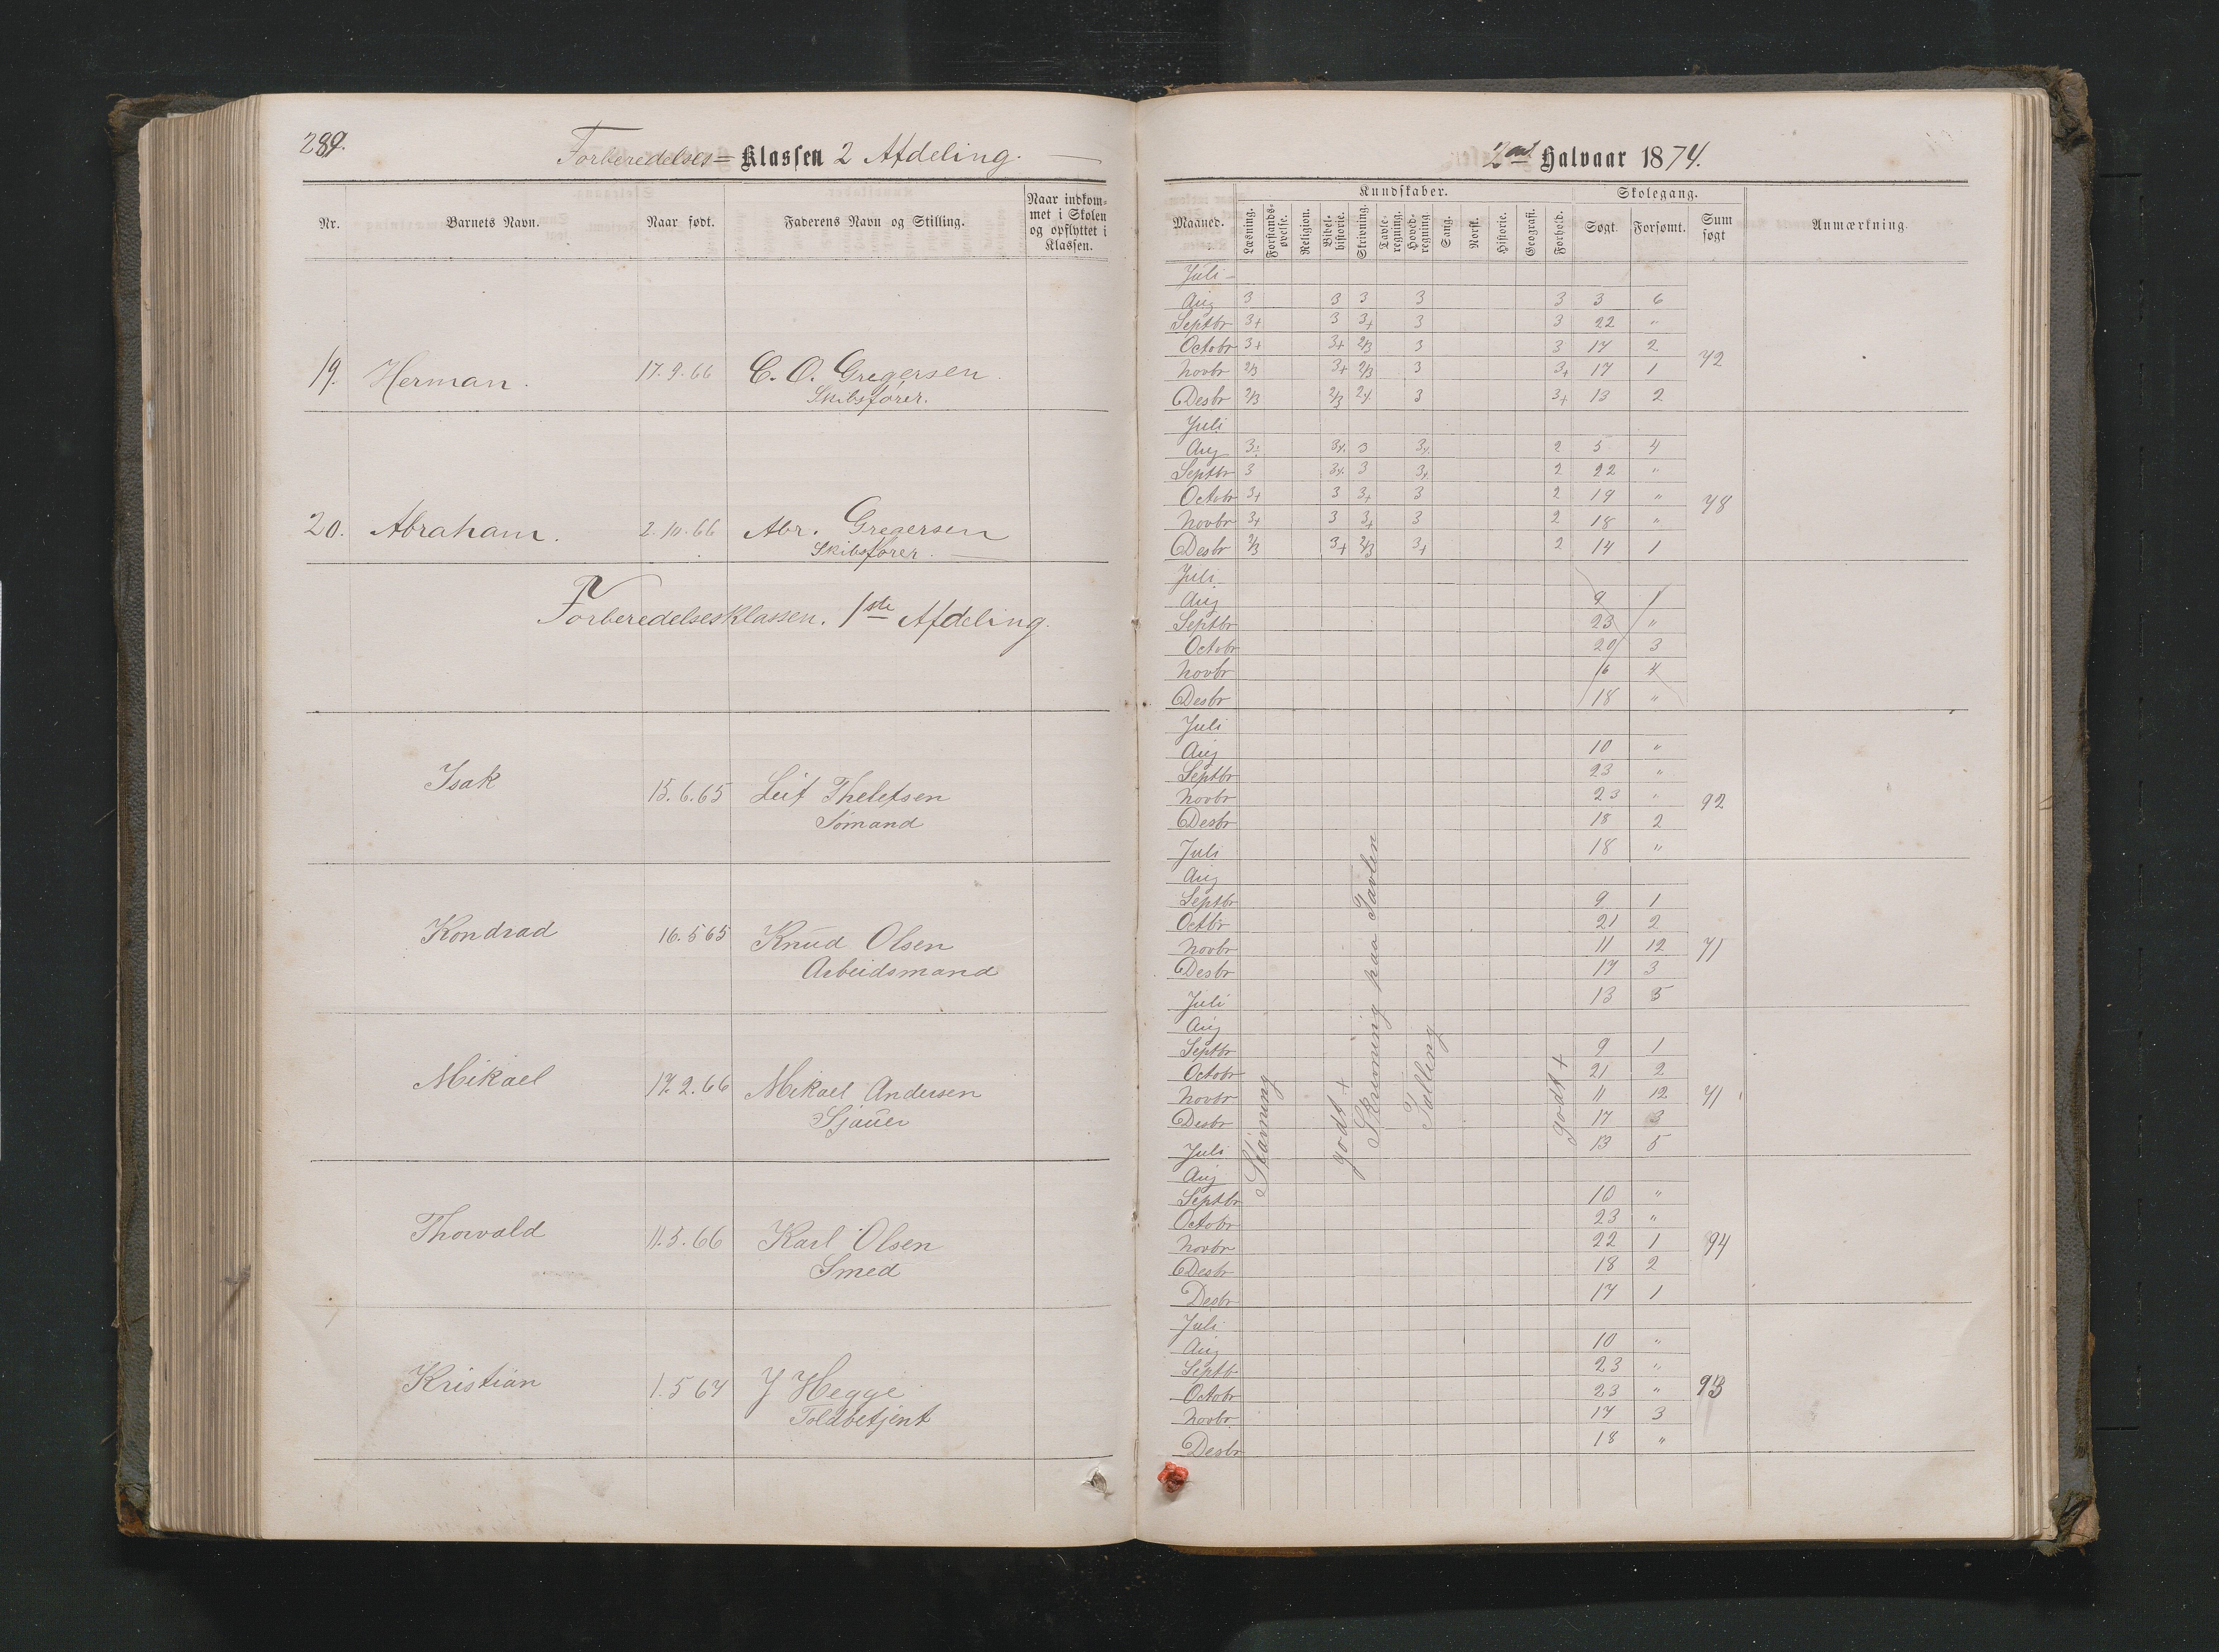 289.
Forberedelses= Klassen 2 Afdeling.
Nr. Barnets Navn. Naar født. Faderens Navn og Stilling. Naar indkommet i Skolen og opflyttet i Klassen.
19. Herman. 17.9.66 C. O. Gregersen
Skibsfører.
20. Abraham. 2.10.66 Abr. Gregersen
Skibsfører.
Forberedelsesklassen. 1ste Afdeling.
Isak 15.6.65 Leif Theletsen
Sømand
Kondrad 16.5 65 Knud Olsen
Arbeidsmand
Mikael 17.2.66 Mikael Andersen
Sjauer
Thorvald 11.5.66 Karl Olsen
Smed
Kristian 1.5 67 J Hegge
Toldbetjent
2det Halvaar 1874.
Maaned. Kundskaber. Skolegang. Anmærkning.
Læsning. Forstandsøvelse. Religion. Bibelhistorie. Skrivning. Tavleregning. Hovedregning. Sang. Norsk. Historie. Geografi. Forhold. Søgt. Forsømt. Sum søgt
Juli
Aug 3 3 3 3 3 3 6
Septbr 3+ 3 3+ 3 3 22 "
Octobr 3+ 3+ 2/3 3 3 17 2
Novbr 2/3 3+ 2/3 3 3+ 17 1
72
Desbr 2/3 2/3 2+ 3 3+ 13 2
Juli
Aug 3 3+ 3 3+ 2 5 4
Septbr 3 3+ 3 3+ 2 22 "
Octobr 3+ 3 3+ 3 2 19 "
78
Novbr 3+ 3 3+ 3 2 18 "
Desbr 2/3 3+ 2/3 3+ 2 14 1
Juli
Aug 9 1
Septbr 23 "
Octobr 20 3
Novbr 16 4
Desbr 18 "
Juli
Aug 10 "
Septbr 23 "
Novbr 23 "
92
Desbr 18 2
Juli 18 "
Aug
Septbr 9 1
Octbr 21 2
Novbr 11 12
71
Desbr 17 3
Juli 13 5
Aug
Septbr 9 1
Octobr 21 2
Novbr 11 12
71
Desbr 17 3
Juli 13 5
Aug
Septbr 10 "
Octobr 23 "
Novbr 22 1
94
Desbr 18 2
Desbr 17 1
Juli
Aug 10 "
Septb 23 "
Octobr 23 "
93
Novbr 17 3
Desbr 18 "
Stavning
godt +
Skrivning paa Tavlen
Tælling
godt +